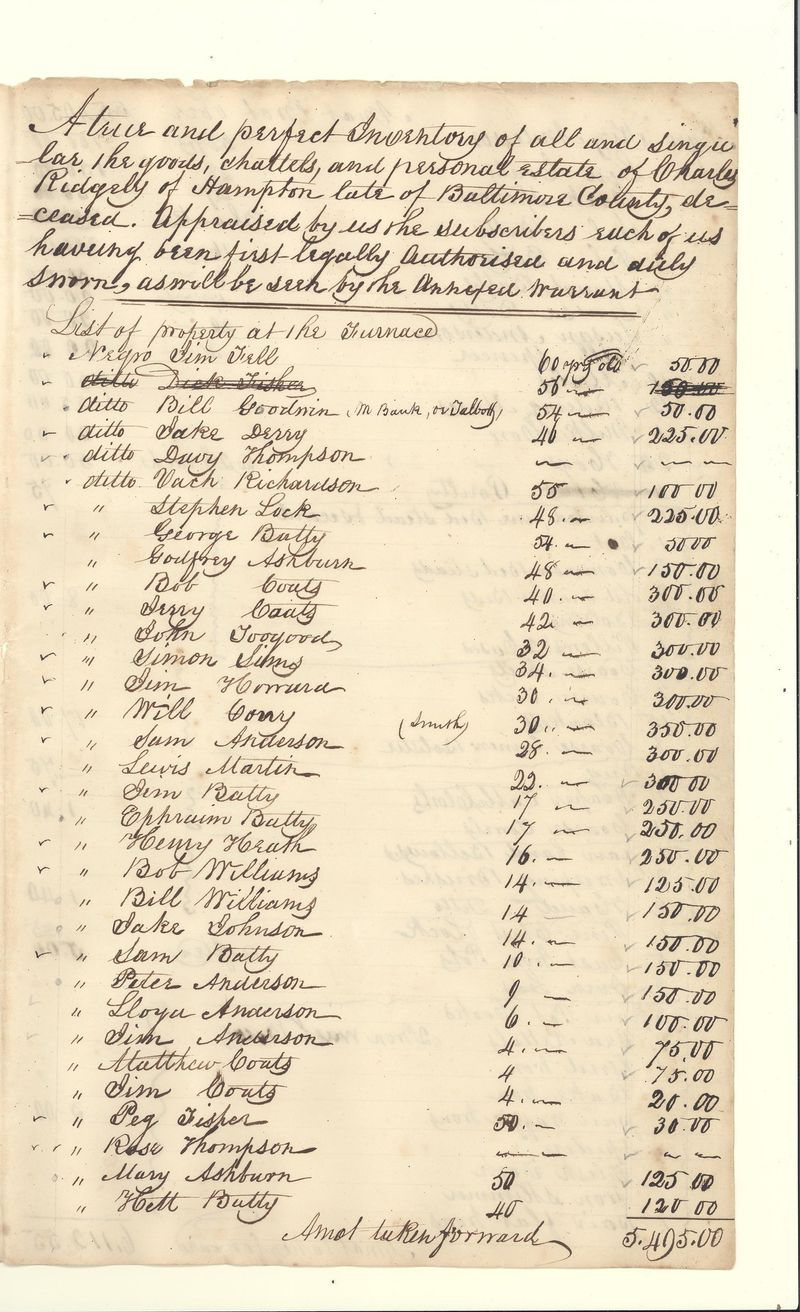 A true and perfect Inventory of all and singu
lar the goods, chattels, and personal estate of Charles
Ridgely of Hampton late of Baltimore County, de=
=ceased. Appraised by us the subscribers each of us
having been first legally Authorised and duly
sworn, as will be seen by the Annexed Warrant
List of property at the Furnace
Negro Jim Fell 60 yrs old 50.00
ditto Dick Fisher 50 "
ditto Bill Goodwin (M Bank, or Talbott) 54 " 50.00
ditto Jake Derry 40 " 225.00
ditto Davy Thompson " " "
ditto Vach Richardson 55 100 00
" Stephen Lock 48 " 225.00
" George Batty 54 " 5000
" Godfrey Ashburn 48 " 150.00
" Bob Coats 40. " 300.00
" Jerry Coats 42 " 300.00
" John Toogood 32 " 300.00
" Simon Sims 34. " 300.00
" Jim Howard 30. " 300.00
" Will Corry (Smith) 30. " 350.00
" Sam Anderson 28. " 300.00
" Lewis Martin 22. " 300 00
" Jim Batty 17 " 250.00
" Ephraim Batty 17 " 250.00
" Henry Heath 16. " 250.00
" Bob Williams 14. " 125.00
" Bill Williams 14 " 150.00
" Jake Johnson 14. " 150.00
" Sam Batty 10. " 150.00
" Peter Anderson 9 " 150.00
" Lloyd Anderson 6. " 100.00
" Jim Anderson 4. " 75.00
" Matthew Coats 4 75.00
" Jim Coats 4. " 20.00
" Peg Fisher 50. " 30.00
" Rose Thompson " " "
" Mary Ashburn 50 125 00
" Hett Batty 40 120 00
Amot taken forward 5.495.00